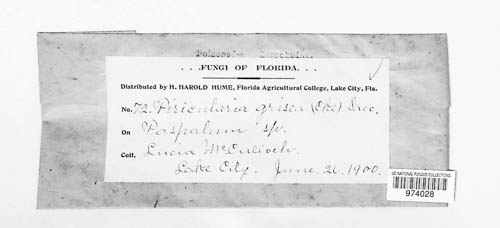 Poisoned
. . . FUNGI OF FLORIDA. . . .
Distributed by H. HAROLD HUME, Florida Agricultural College, Lake City, Fla.
No. 72. Piricularia grisea (Cke) Sacc.
On Paspalum sp.
Coll. Lucia McCulloch.
Lake City. June. 26. 1900.
US NATIONAL FUNGUS COLLECTIONS
974028